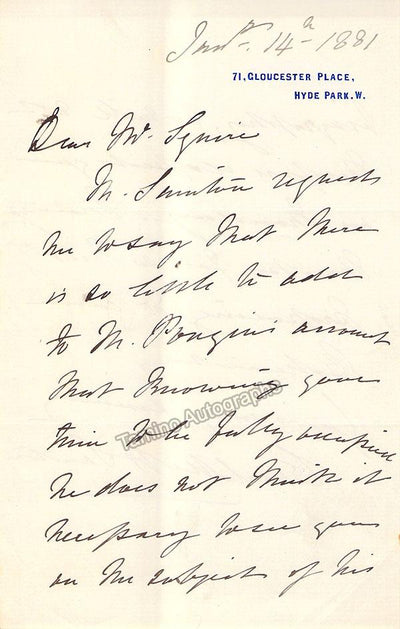 Jan^y. 14^th 1881
71, GLOUCESTER PLACE,
HYDE PARK. W.
Dear Mr. Squire
M. Sainton requests
me to say that there
is so little to add
to M. Pougin's account
that knowing your
time to be fully occupied
he does not think it
necessary to see you
on the subject of his
Tamino Autographs